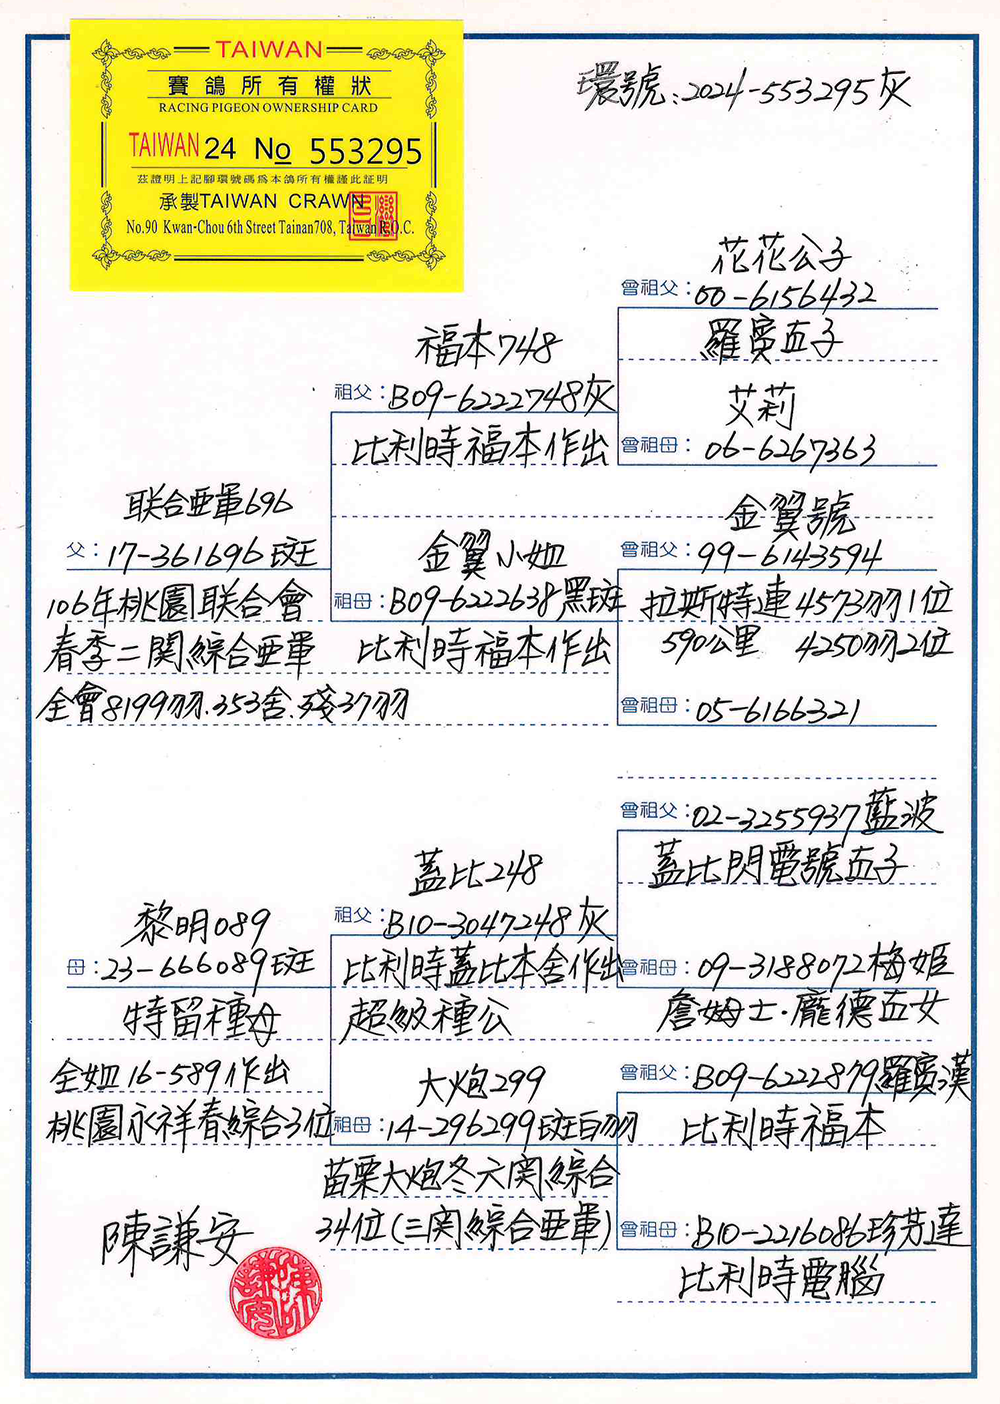 TAIWAN
賽鴿所有權狀
RACING PIGEON OWNERSHIP CARD
TAIWAN 24 No 553295
茲證明上記腳環號碼為本鴿所有權謹此証明
承製TAIWAN CRAWN
No.90 Kwan-Chou 6th Street Tainan708, Taiwan R.O.C.
環號:2024-553295灰
花花公子
曾祖父:00-6156432
羅賓直子
福本748
祖父:B09-6222748灰
比利時福本作出
艾莉
曾祖母:06-6267363
联合亜軍696
父:17-361696斑
106年桃園联合會
春季二関綜合亜軍
全會8199羽.353舍.殘37羽
金翼小姐
祖母:B09-6222638黑斑
比利時福本作出
金翼號
曾祖父:99-6143594
拉斯特連4573羽1位
590公里 4250羽2位
曾祖母:05-6166321
曾祖父:02-3255937藍波
蓋比閃電號直子
蓋比248
祖父:B10-3047248灰
比利時蓋比本舍作出
超級種公
曾祖母:09-3188072梅姬
詹姆士·龐德直女
黎明089
母:23-666089斑
特留種母
全姐16-589作出
桃園永祥春綜合3位
大炮299
祖母:14-296299斑白羽
苗栗大炮冬六関綜合
34位(三関綜合亜軍)
曾祖父:B09-6222879羅賓漢
比利時福本
曾祖母:B10-2216086珍芳達
比利時電腦
陳謙安